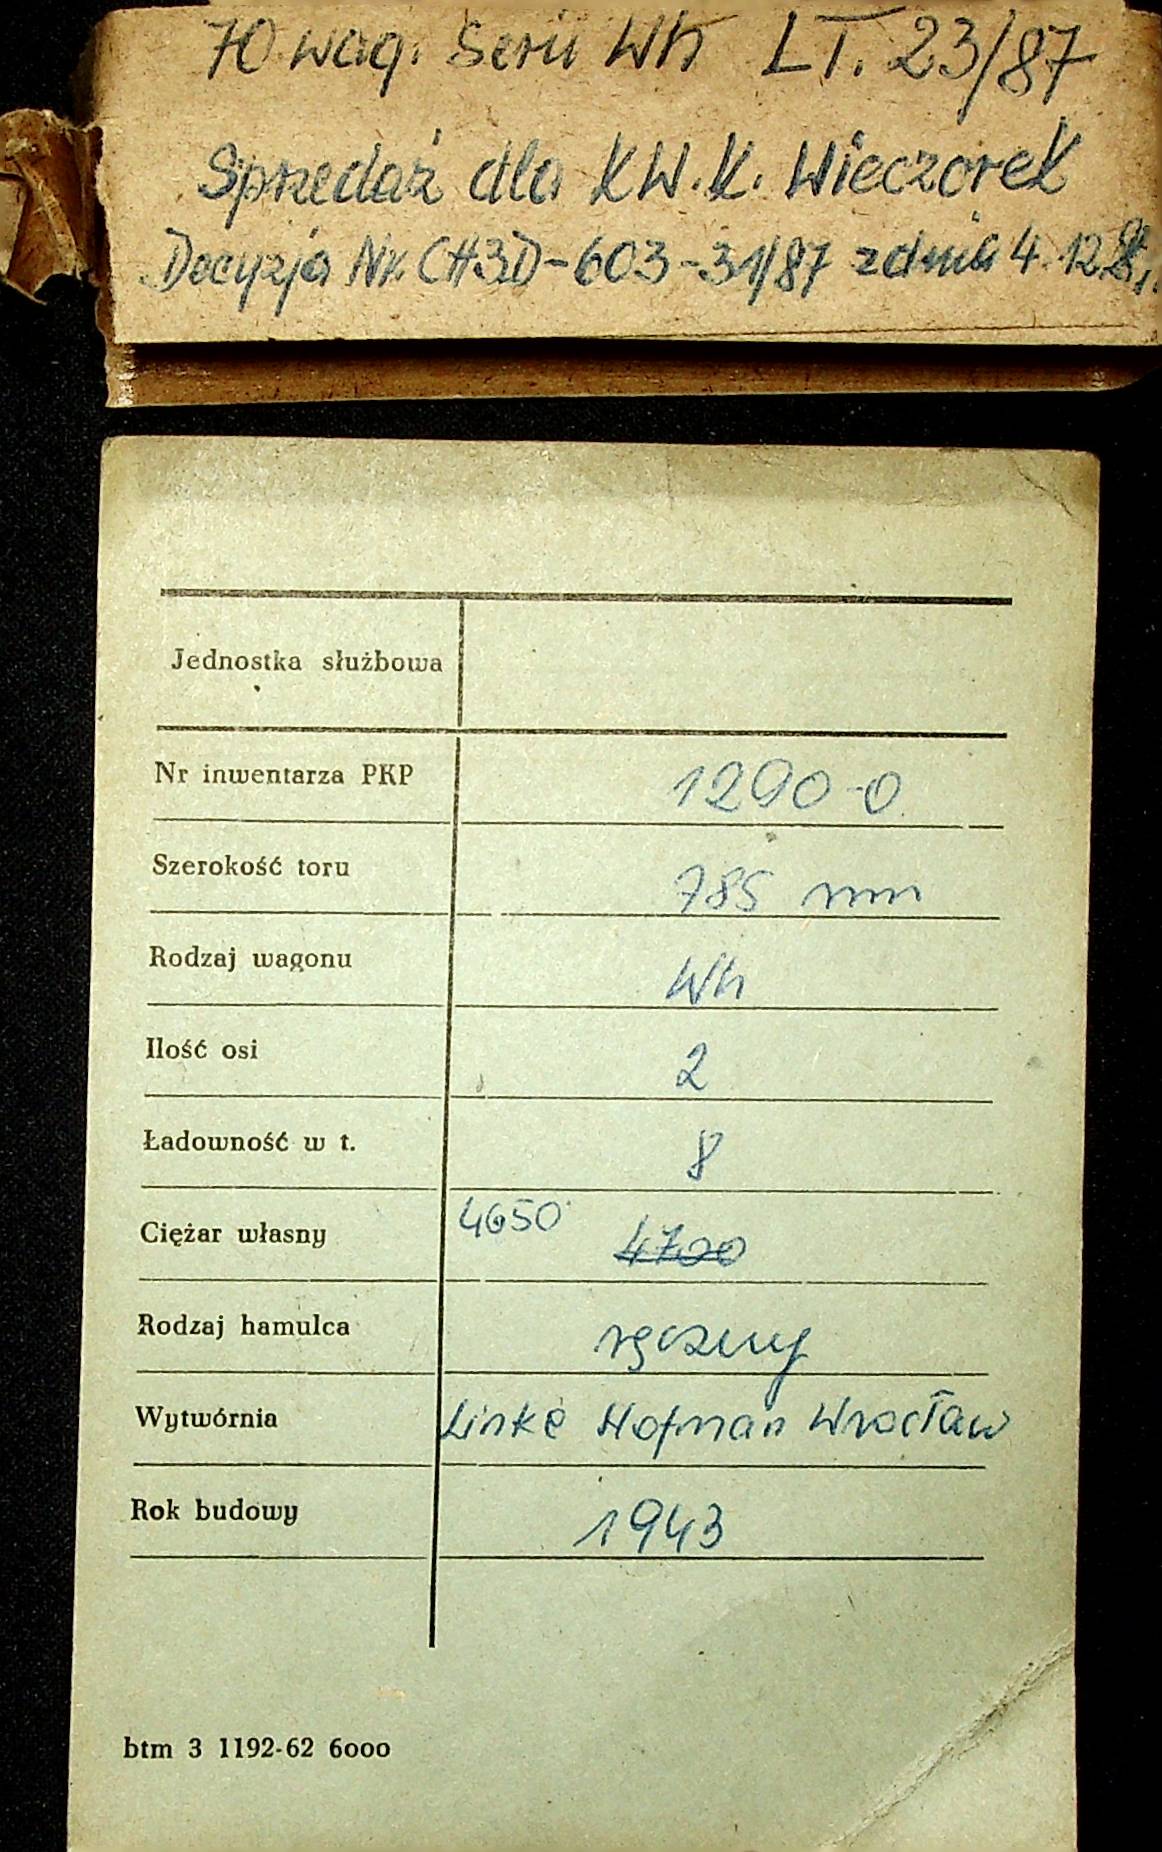 70 wag. Serii Wh LT. 23/87
Sprzedaż dla KW.K. Wieczorek
Decyzja Nr CH3D-603-31/87 z dnia 4.12.
Jednostka służbowa
Nr inwentarza PKP 1290-0
Szerokość toru 785 mm
Rodzaj wagonu Wh
Ilość osi 2
Ładowność w t. 8
Ciężar własny 4650 4700
Rodzaj hamulca ręczny
Wytwórnia Linke Hofman Wrocław
Rok budowy 1943
btm 3 1192-62 6000